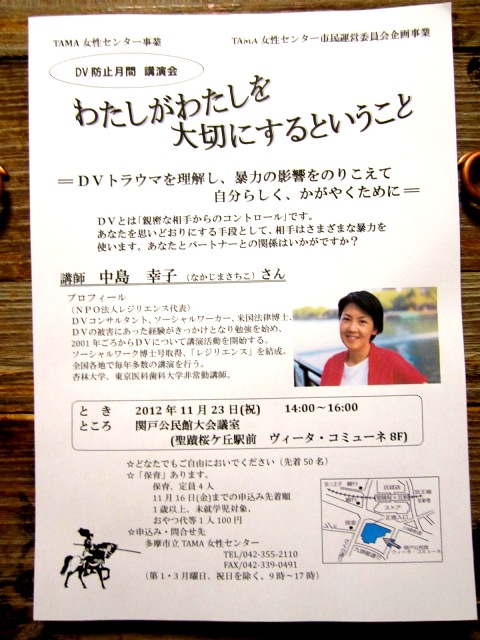 TAMA 女性センター事業
TAMA 女性センター市民運営委員会企画事業
DV 防止月間 講演会
わたしがわたしを
大切にするということ
＝DVトラウマを理解し、暴力の影響をのりこえて
自分らしく、かがやくために＝
DVとは「親密な相手からのコントロール」です。
あなたを思いどおりにする手段として、相手はさまざまな暴力を
使います。あなたとパートナーとの関係はいかがですか？
講師 中島 幸子（なかじまさちこ）さん
プロフィール
（NPO法人レジリエンス代表）
DVコンサルタント、ソーシャルワーカー、米国法律博士、
DVの被害にあった経験がきっかけとなり勉強を始め、
2001年ごろからDVについて講演活動を開始する。
ソーシャルワーク博士号取得、「レジリエンス」を結成。
全国各地で毎年多数の講演を行う。
杏林大学、東京医科歯科大学非常勤講師。
と き 2012年11月23日(祝) 14:00～16:00
ところ 関戸公民館大会議室
(聖蹟桜ケ丘駅前 ヴィータ・コミューネ 8F)
☆どなたでもご自由においでください（先着50名）
☆「保育」あります。
保育、定員4人
11月16日(金)までの申込み先着順
1歳以上、未就学児対象、
おやつ代等1人100円
☆申込み・問合せ先
多摩市立TAMA女性センター
TEL/042-355-2110
FAX/042-339-0491
（第1・3月曜日、祝日を除く。9時～17時）
銀行
百貨店
聖蹟桜ヶ丘駅
京王線
ストア
正面入口
関戸公民館
ヴィータ・コミューネ